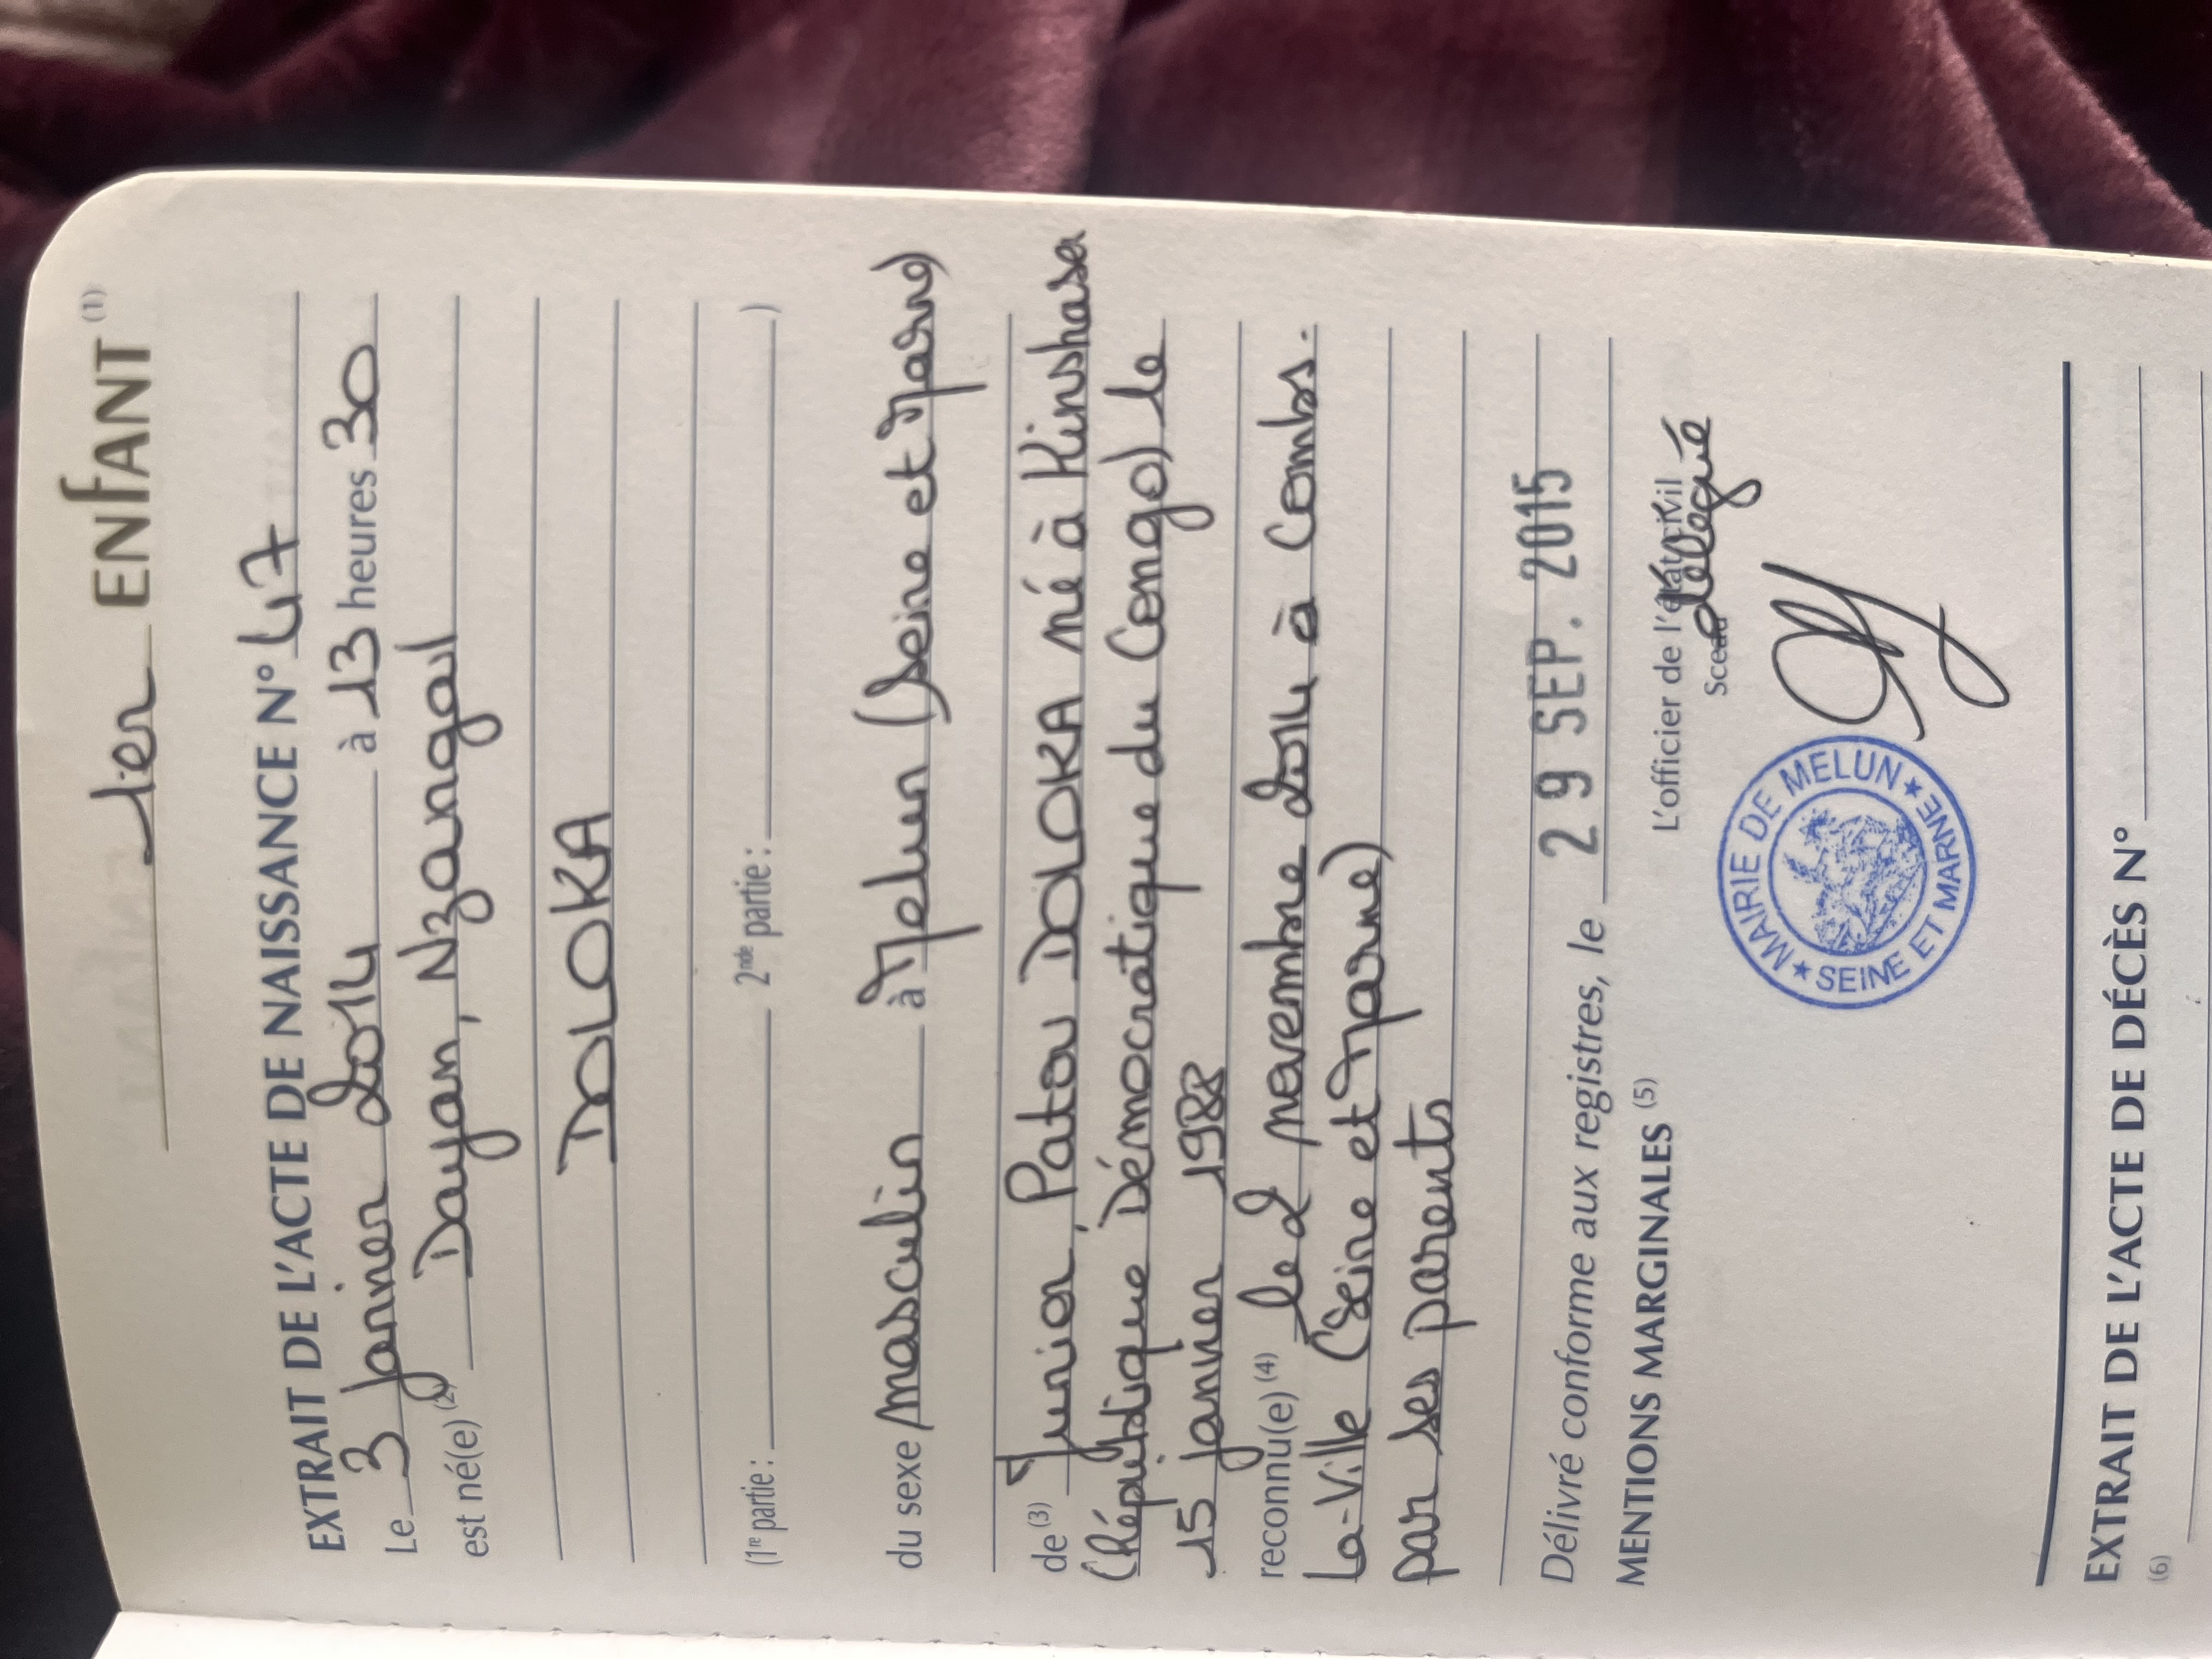 1er ENFANT (1)
EXTRAIT DE L'ACTE DE NAISSANCE N° 47
Le 3 janvier 2014 à 13 heures 30
est né(e) (2) Dayan, Nzangoul
DOLOKA
(1re partie : 2nde partie : )
du sexe masculin à Melun (Seine et Marne)
de (3) Junior, Patou DOLOKA né à Kinshasa
(République Démocratique du Congo) le
15 janvier 1988
reconnu(e) (4) le 2 novembre 2014 à Combs-
La-Ville (Seine et Marne)
par ses parents
Délivré conforme aux registres, le 29 SEP. 2015
MENTIONS MARGINALES (5)
L'officier de l'état civil
délégué
Sceau
MAIRIE DE MELUN
★ SEINE ET MARNE ★
EXTRAIT DE L'ACTE DE DÉCÈS N°
(6)